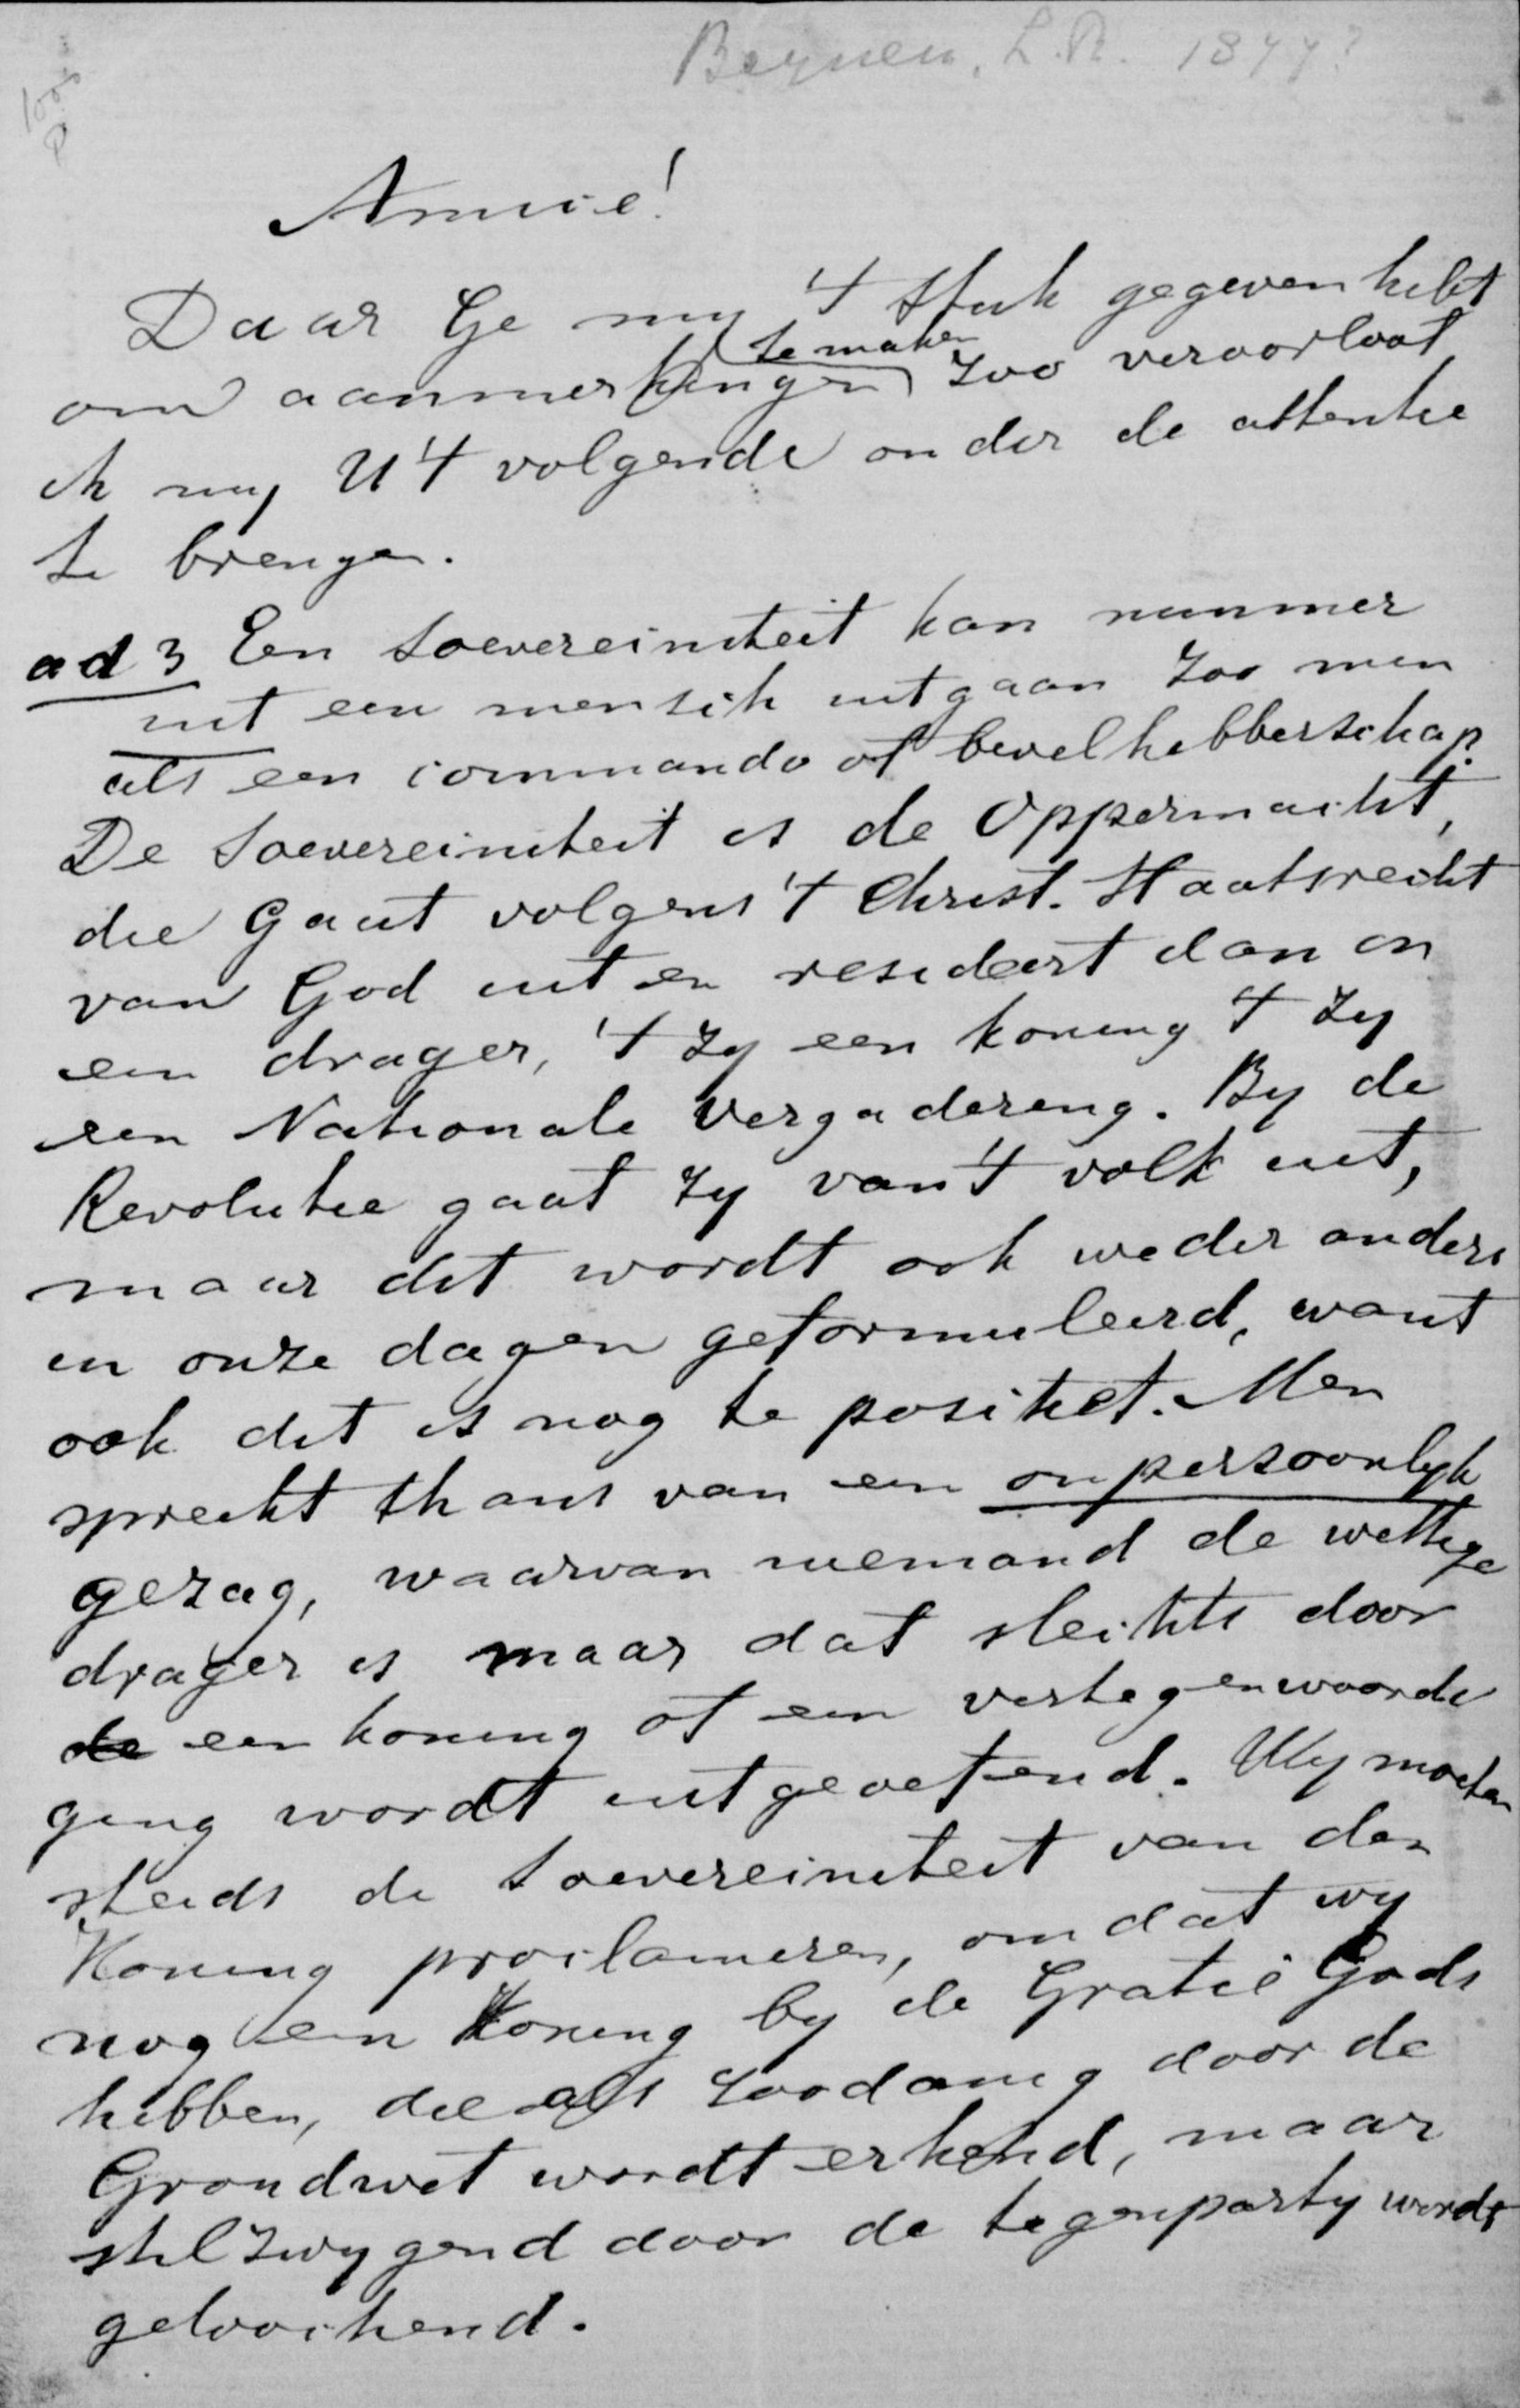 Beynen, L.R. 1877?
Amice!
Daar Ge my 't stuk gegeven hebt
om aanmerkingen te maken zoo veroorlooft
ik my U 't volgende onder de attentie
te brengen.
ad 3 Een soevereiniteit kan nimmer
uit een mensch uitgaan zoo men
als een commando of bevelhebberschap.
De soevereiniteit is de Oppermacht,
die gaat volgens 't Christ. Staatsrecht
van God uit en resideert dan in
een drager, 't zy een koning 't zy
een Nationale Vergadering. By de
Revolutie gaat zy van 't volk uit,
maar dit wordt ook weder anders
in onze dagen geformuleerd, want
ook dit is nog te positief. Men
spreekt thans van een onpersoonlyk
gezag, waarvan niemand de wettige
drager is maar dat slechts door
de een koning of een vertegenwoordi
ging wordt uitgeoefend. Wy moeten
steeds de soevereiniteit van den
Koning proclameren, omdat wy
nog een Koning by de Gratie Gods
hebben, die als zoodanig door de
Grondwet wordt erkend, maar
stilzwygend door de tegenparty wordt
geloochend.